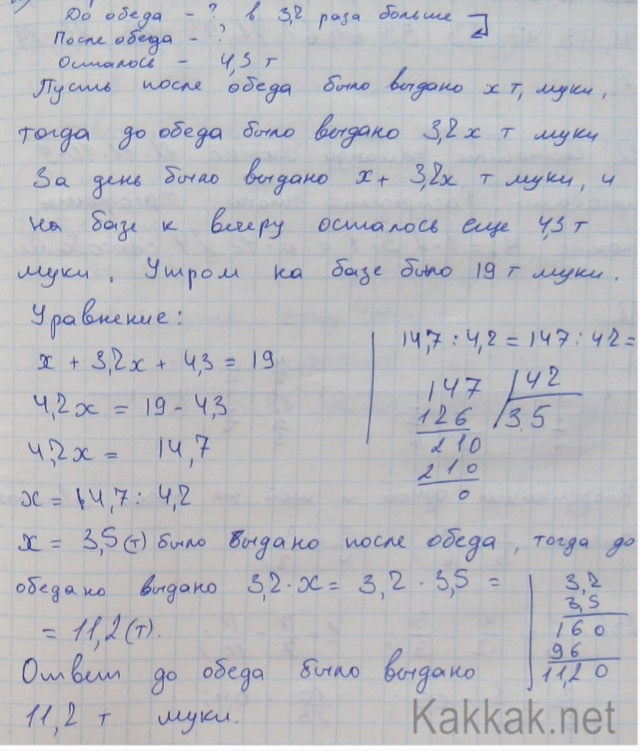 До обеда - ? в 3,2 раза больше
После обеда - ?
Осталось - 4,3 т
Пусть после обеда было выдано x т, муки,
тогда до обеда было выдано 3,2x т муки
За день было выдано x + 3,2x т муки, и
на базе к вечеру осталось еще 4,3 т
муки. Утром на базе было 19 т муки.
Уравнение:
x + 3,2x + 4,3 = 19
4,2x = 19 - 4,3
4,2x = 14,7
x = 14,7 : 4,2
14,7 : 4,2 = 147 : 42 =
147 42
126 3,5
210
210
0
x = 3,5 (т) было выдано после обеда, тогда до
обедано выдано 3,2 · x = 3,2 · 3,5 =
= 11,2 (т).
3,2
3,5
160
96
11,20
Ответ до обеда было выдано
11,2 т муки.
Kakkak.net